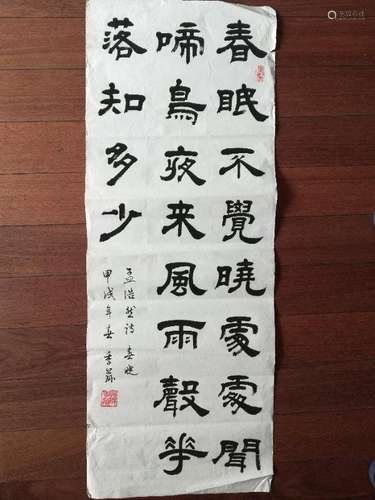 春眠不覺曉處處聞
啼鳥夜来風雨聲花
落知多少
孟浩然诗春晓
甲戌年春